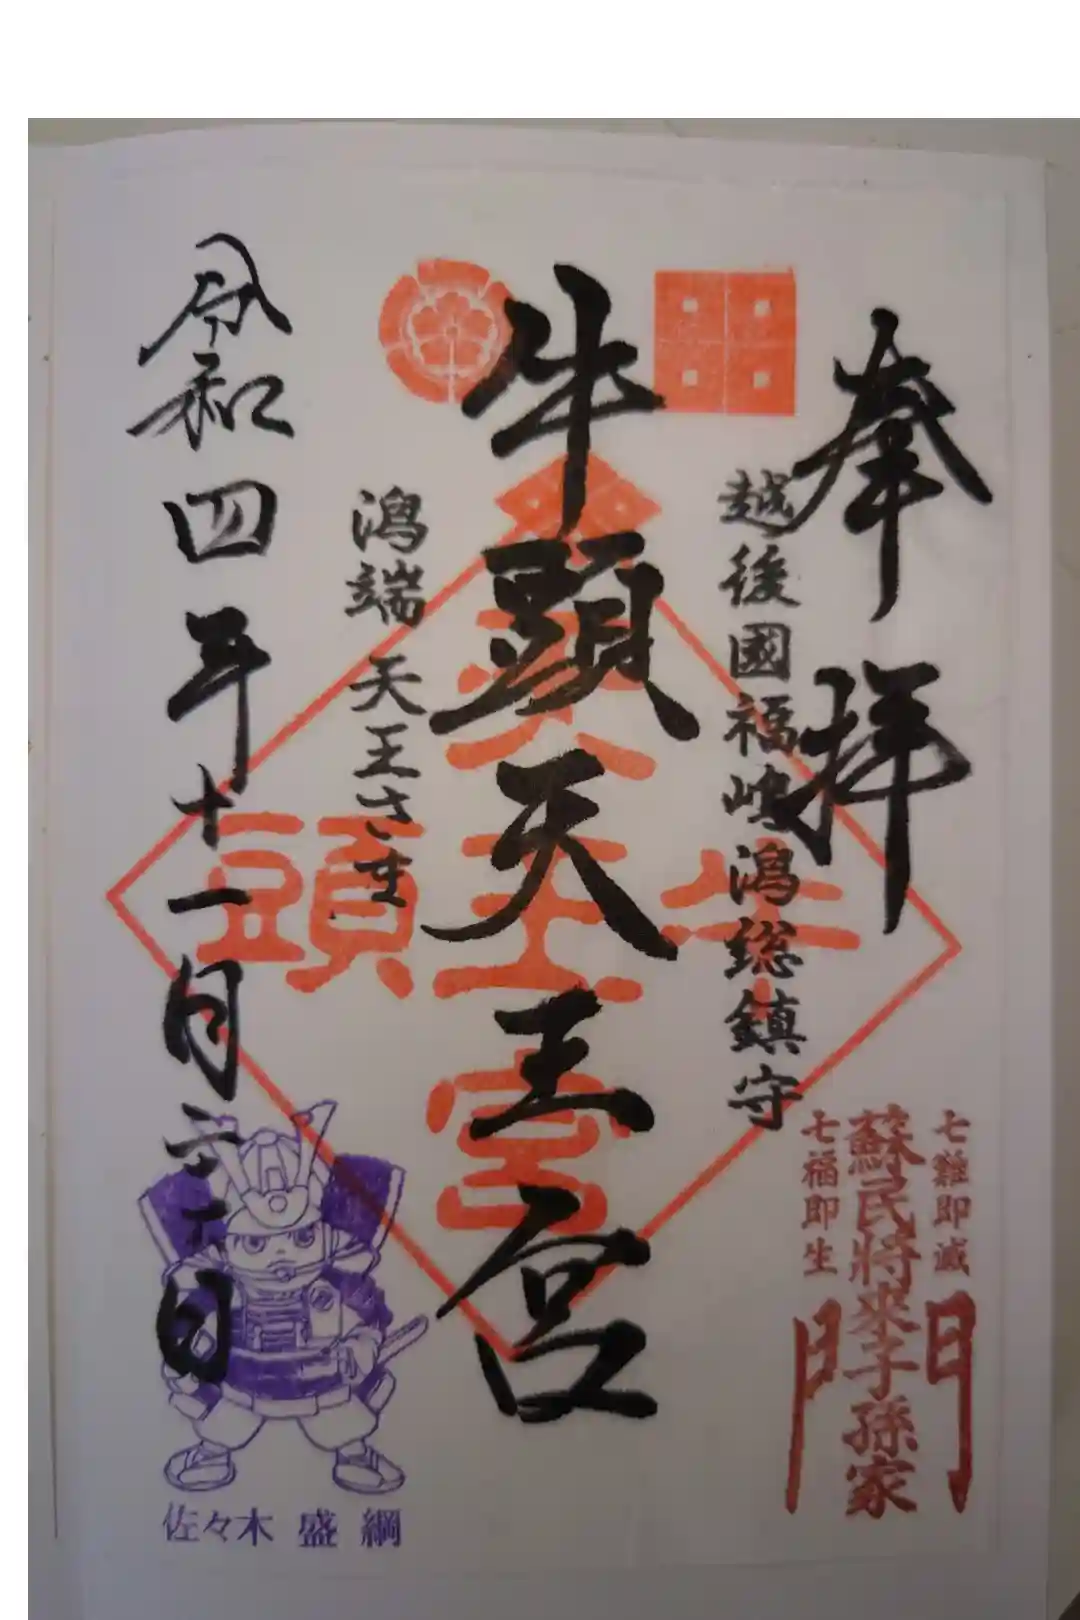 奉拝
越後國福嶋潟総鎮守
牛頭天王宮
潟端 天王さま
令和四年十一月二十日
牛頭
天王宮
七難即滅
蘇民將来子孫家
七福即生
門
佐々木 盛 綱